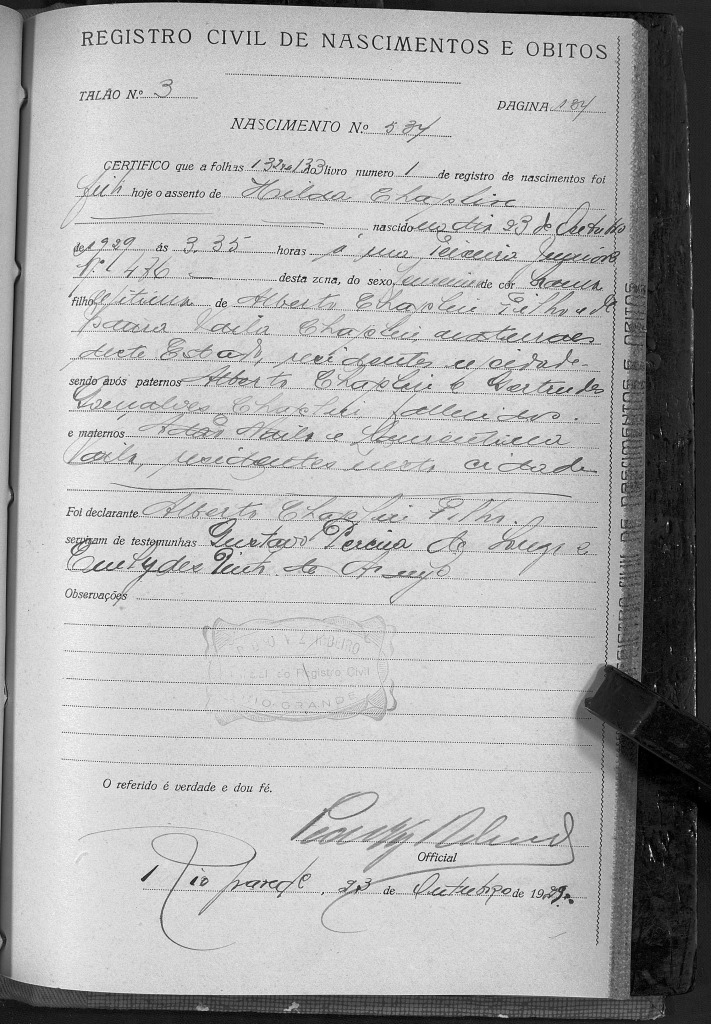 REGISTRO CIVIL DE NASCIMENTOS E OBITOS
TALÃO N.º 3
PAGINA 184
NASCIMENTO N.º 534
CERTIFICO que a folhas 132 133 do livro numero 1 de registro de nascimentos foi
feito hoje o assento de Hilda Chaplin
nascido no dia 23 de Outubro
de 1929 ás 3.35 horas á rua Teixeira Junior
N.º 476 desta zona, do sexo, de côr
filho legitima de Alberto Chaplin Filho e de
Chaplin, naturaes
deste Estado, residentes n cidade
sendo avós paternos Alberto Chaplin e Gertrudes
Gonçalves Chaplin fallecidos.
e maternos Adão e
residentes nesta cidade
Foi declarante Alberto Chaplin Filho.
serviram de testemunhas Gustavo Pereira de e
Euclydes Pinto de Araujo
Observações
Registro Civil
RIO GRANDE
O referido é verdade e dou fé.
Official
Rio Grande, 23 de Outubro de 1929.